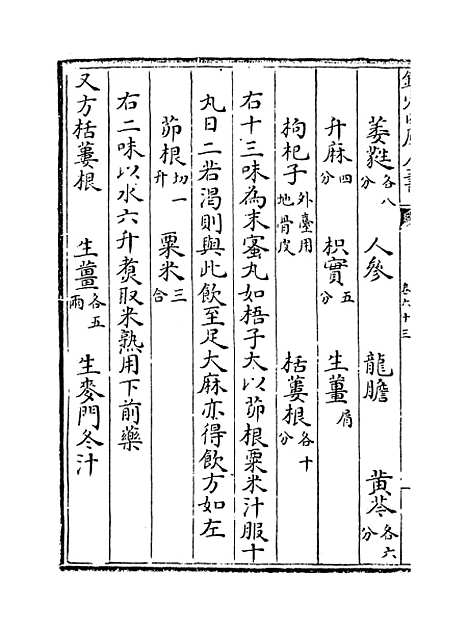 萎蕤各八分 人參 龍膽 黃芩各六分
升麻四分 枳實五分 生薑屑
枸杞子外臺用地骨皮 栝蔞根各十分
右十三味為末蜜丸如梧子大以茆根粟米汁服十
丸日二若渴則與此飲至足大麻亦得飲方如左
茆根切一升 粟米三合
右二味以水六升煑取米熟用下前藥
又方栝蔞根 生薑各五兩 生麥門冬汁
卷六十三